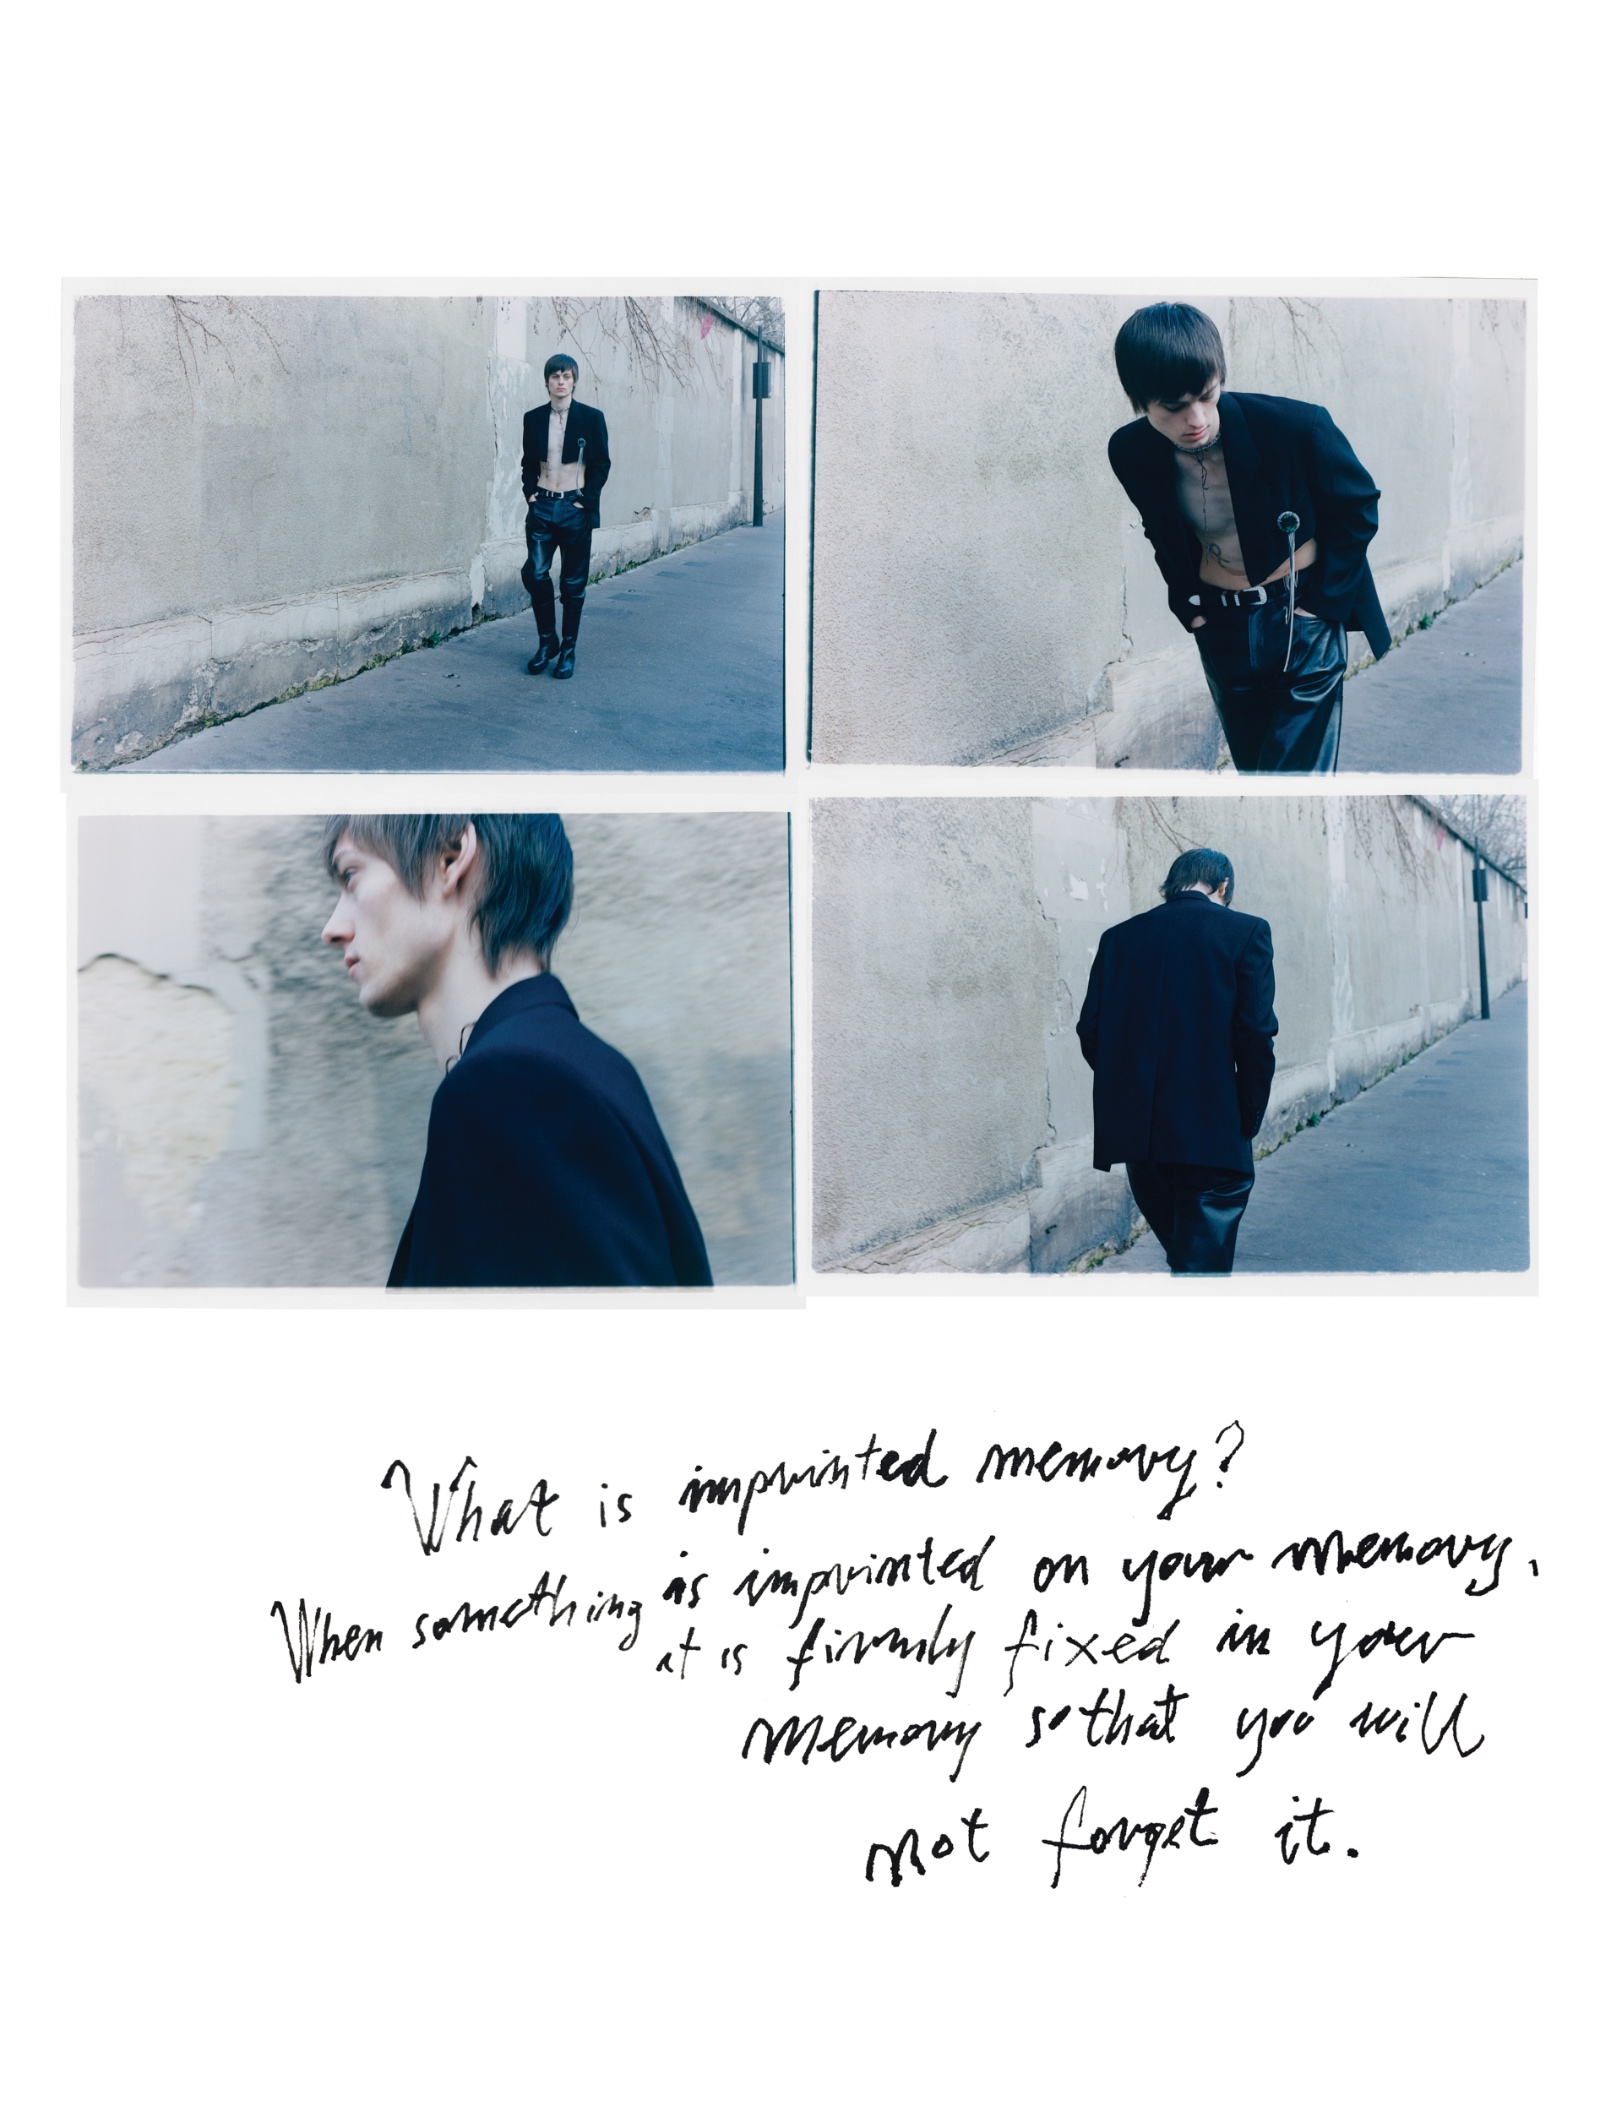 What is imprinted memory?
When something is imprinted on your memory,
it is firmly fixed in your
memory so that you will
not forget it.